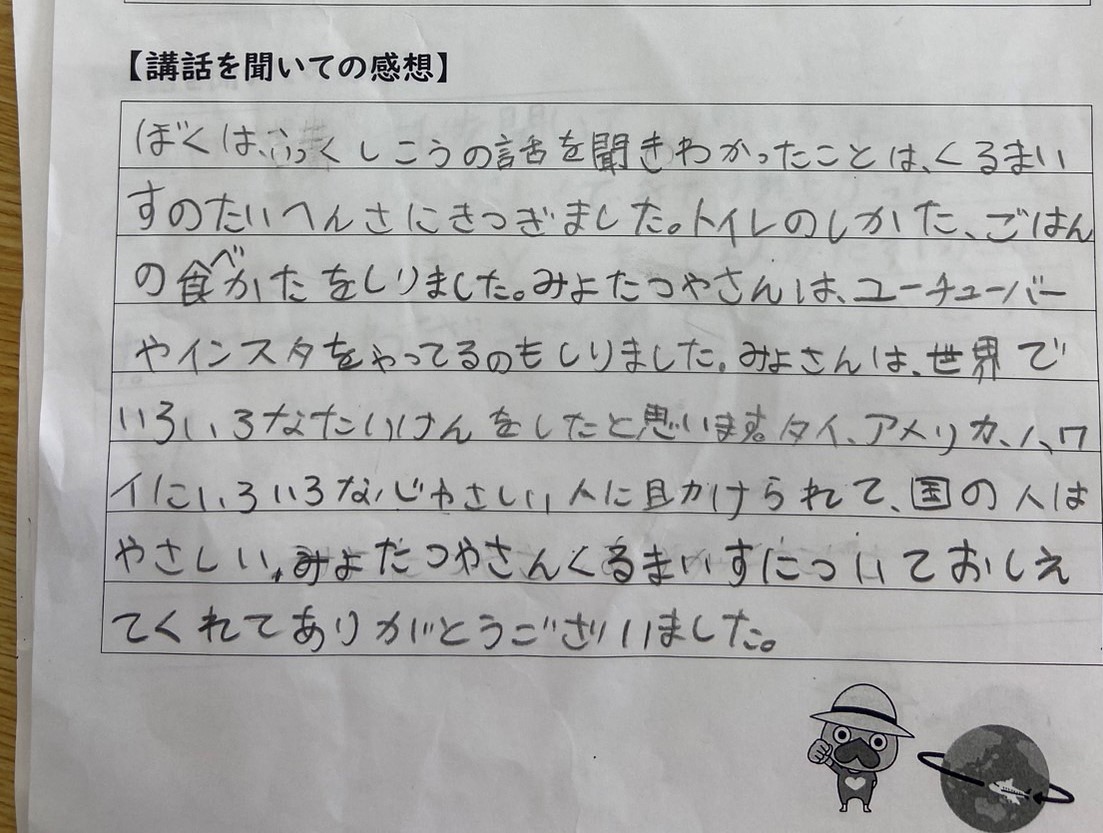 【講話を聞いての感想】
ぼくは、ふっくしこうの話を聞きわかったことは、くるまい
すのたいへんさにきつぎました。トイレのしかた、ごはん
の食べかたをしりました。みよたつやさんは、ユーチューバー
やインスタをやってるのもしりました。みよさんは、世界で
いろいろなたいけんをしたと思います。タイ、アメリカ、ハワ
イにいろいろな、じやさしい人に目かけられて、国の人は
やさしい。みよたつやさんくるまいすについておしえ
てくれてありがとうございました。